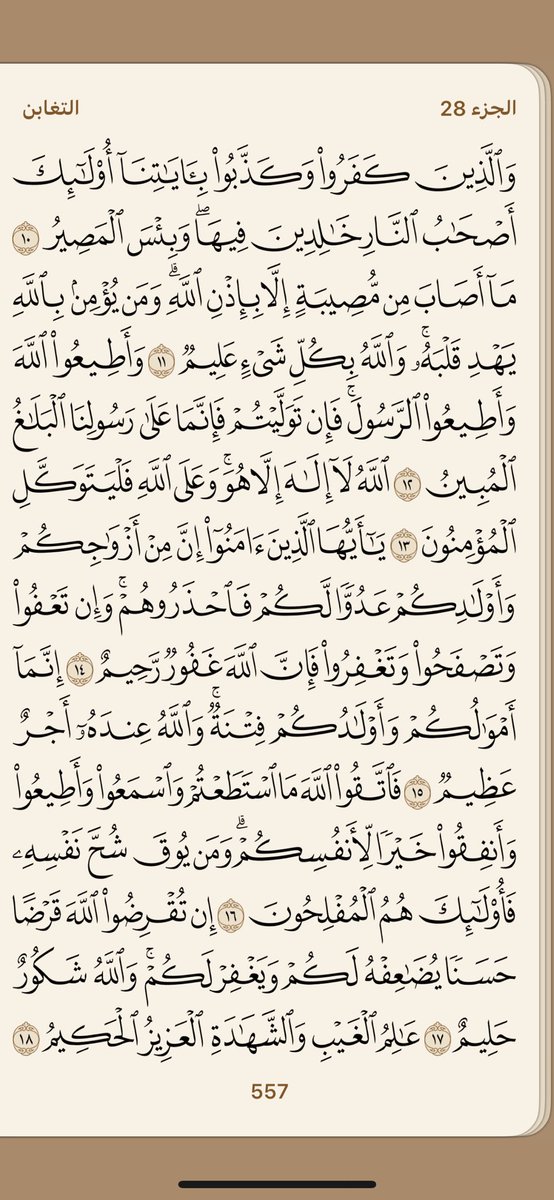 الجزء 28
التغابن
وَالَّذِينَ كَفَرُوا۟ وَكَذَّبُوا۟ بِـَٔايَـٰتِنَآ أُو۟لَـٰٓئِكَ
أَصْحَـٰبُ ٱلنَّارِ خَـٰلِدِينَ فِيهَا ۖ وَبِئْسَ ٱلْمَصِيرُ ١٠
مَآ أَصَابَ مِن مُّصِيبَةٍ إِلَّا بِإِذْنِ ٱللَّهِ ۗ وَمَن يُؤْمِنۢ بِٱللَّهِ
يَهْدِ قَلْبَهُۥ ۚ وَٱللَّهُ بِكُلِّ شَىْءٍ عَلِيمٌ ١١ وَأَطِيعُوا۟ ٱللَّهَ
وَأَطِيعُوا۟ ٱلرَّسُولَ ۚ فَإِن تَوَلَّيْتُمْ فَإِنَّمَا عَلَىٰ رَسُولِنَا ٱلْبَلَـٰغُ
ٱلْمُبِينُ ١٢ ٱللَّهُ لَآ إِلَـٰهَ إِلَّا هُوَ ۚ وَعَلَى ٱللَّهِ فَلْيَتَوَكَّلِ
ٱلْمُؤْمِنُونَ ١٣ يَـٰٓأَيُّهَا ٱلَّذِينَ ءَامَنُوٓا۟ إِنَّ مِنْ أَزْوَٰجِكُمْ
وَأَوْلَـٰدِكُمْ عَدُوًّا لَّكُمْ فَٱحْذَرُوهُمْ ۚ وَإِن تَعْفُوا۟
وَتَصْفَحُوا۟ وَتَغْفِرُوا۟ فَإِنَّ ٱللَّهَ غَفُورٌ رَّحِيمٌ ١٤ إِنَّمَآ
أَمْوَٰلُكُمْ وَأَوْلَـٰدُكُمْ فِتْنَةٌ ۚ وَٱللَّهُ عِندَهُۥٓ أَجْرٌ
عَظِيمٌ ١٥ فَٱتَّقُوا۟ ٱللَّهَ مَا ٱسْتَطَعْتُمْ وَٱسْمَعُوا۟ وَأَطِيعُوا۟
وَأَنفِقُوا۟ خَيْرًا لِّأَنفُسِكُمْ ۗ وَمَن يُوقَ شُحَّ نَفْسِهِۦ
فَأُو۟لَـٰٓئِكَ هُمُ ٱلْمُفْلِحُونَ ١٦ إِن تُقْرِضُوا۟ ٱللَّهَ قَرْضًا
حَسَنًا يُضَـٰعِفْهُ لَكُمْ وَيَغْفِرْ لَكُمْ ۚ وَٱللَّهُ شَكُورٌ
حَلِيمٌ ١٧ عَـٰلِمُ ٱلْغَيْبِ وَٱلشَّهَـٰدَةِ ٱلْعَزِيزُ ٱلْحَكِيمُ ١٨
557